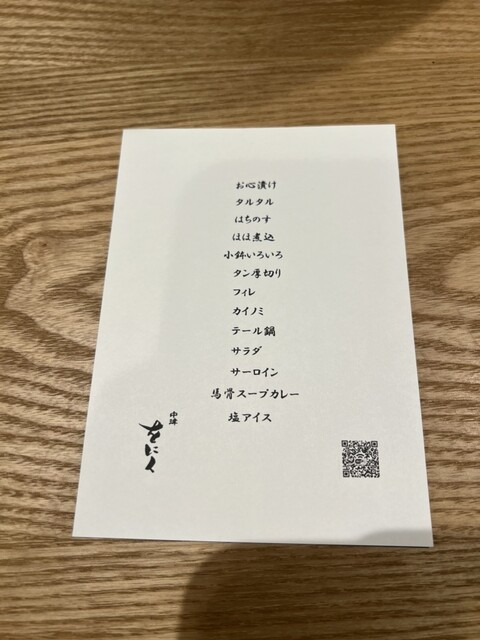 お心漬け
タルタル
はちのす
ほほ煮込
小鉢いろいろ
タン厚切り
フィレ
カイノミ
テール鍋
サラダ
サーロイン
馬骨スープカレー
塩アイス
中津
をにく